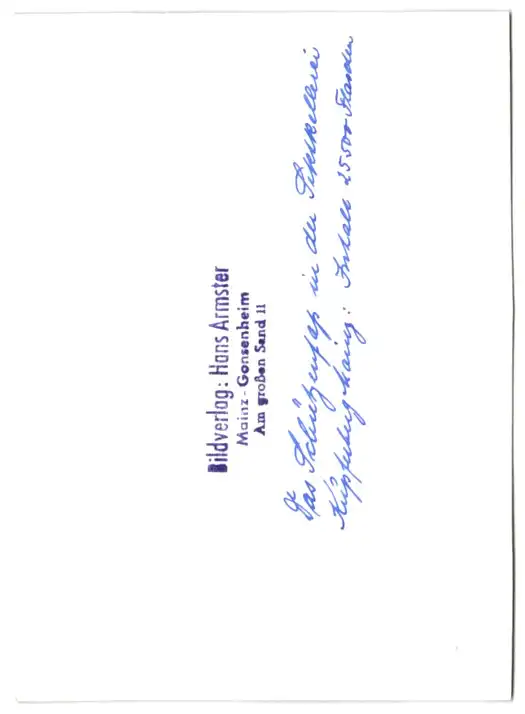 Bildverlag: Hans Armster
Mainz - Gonsenheim
Am großen Sand 11
Das Schützenfaß in der Sektkellerei
Kupferberg Mainz: Inhalt 25500 Flaschen